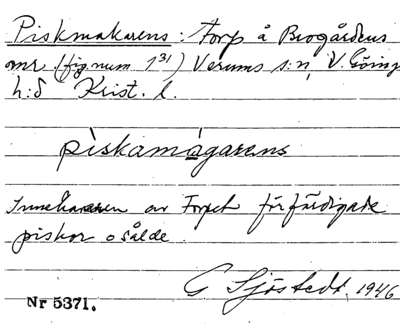 Piskmakarens: Torp å Brogårdens
omr. (fig num 1³¹) Verums s:n, V. Göing
h:d Krist. l.
piskamagarens
Innehavaren av Torpet förfärdigade
piskor o sålde.
G Sjöstedt, 1946
Nr 5371.